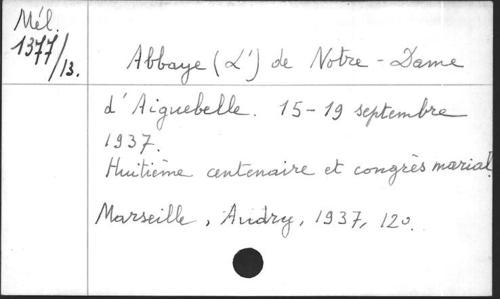 Mél.
1377/13.
Abbaye (L') de Notre-Dame
d'Aiguebelle. 15-19 septembre
1937.
Huitième centenaire et congrès marial.
Marseille, Audry, 1937, 12o.